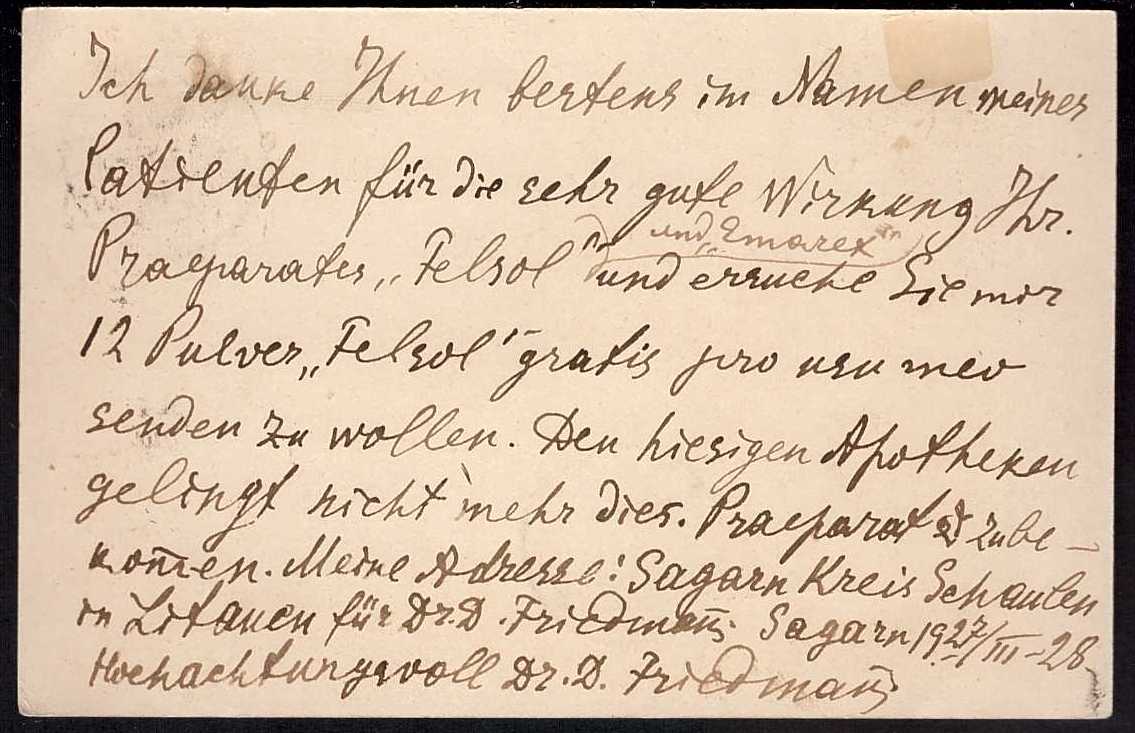 Ich danke Ihnen bestens im Namen meiner
Patienten für die sehr gute Wirkung Ihr.
und „Emarex"
Praeparates „Felsol" und ersuche Sie mir
12 Pulver „Felsol" gratis pro usu meo
senden zu wollen. Den hiesigen Apotheken
gelingt nicht mehr dies. Praeparat zu be-
kom̄en. Meine Adresse: Sagarn Kreis Schaulen
in Litauen für Dr. D. Friedman̄. Sagarn 1927/III-28
Hochachtungsvoll Dr. D. Friedman̄